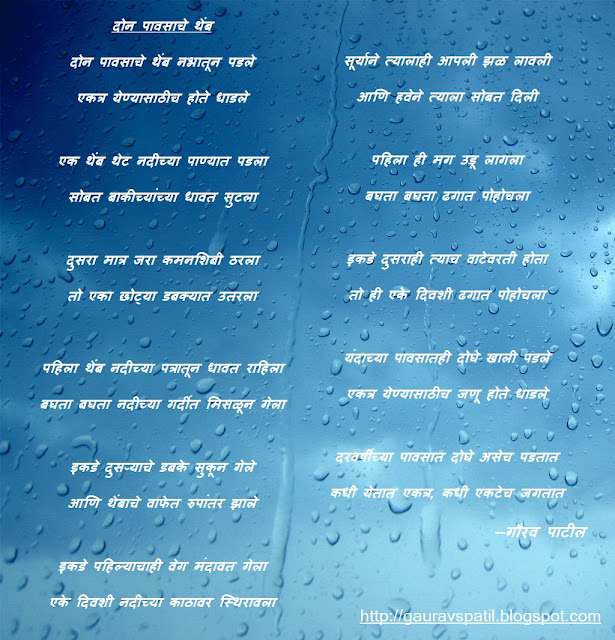 दोन पावसाचे थेंब
दोन पावसाचे थेंब नभातून पडले
एकत्र येण्यासाठीच होते धाडले
एक थेंब थेट नदीच्या पाण्यात पडला
सोबत बाकीच्यांच्या धावत सुटला
दुसरा मात्र जरा कमनशिबी ठरला
तो एका छोट्या डबक्यात उतरला
पहिला थेंब नदीच्या पत्रातून धावत राहिला
बघता बघता नदीच्या गर्दीत मिसळून गेला
इकडे दुसऱ्याचे डबके सुकून गेले
आणि थेंबाचे वाफेत रुपांतर झाले
इकडे पहिल्याचाही वेग मंदावत गेला
एके दिवशी नदीच्या काठावर स्थिरावला
सूर्याने त्यालाही आपली झळ लावली
आणि हवेने त्याला सोबत दिली
पहिला ही मग उडू लागला
बघता बघता ढगात पोहोचला
इकडे दुसराही त्याच वाटेवरती होता
तो ही एके दिवशी ढगात पोहोचला
यंदाच्या पावसातही दोघे खाली पडले
एकत्र येण्यासाठीच जणू होते धाडले
दरवर्षीच्या पावसात दोघे असेच पडतात
कधी येतात एकत्र, कधी एकटेच जगतात
--गौरव पाटील
http://gauravspatil.blogspot.com